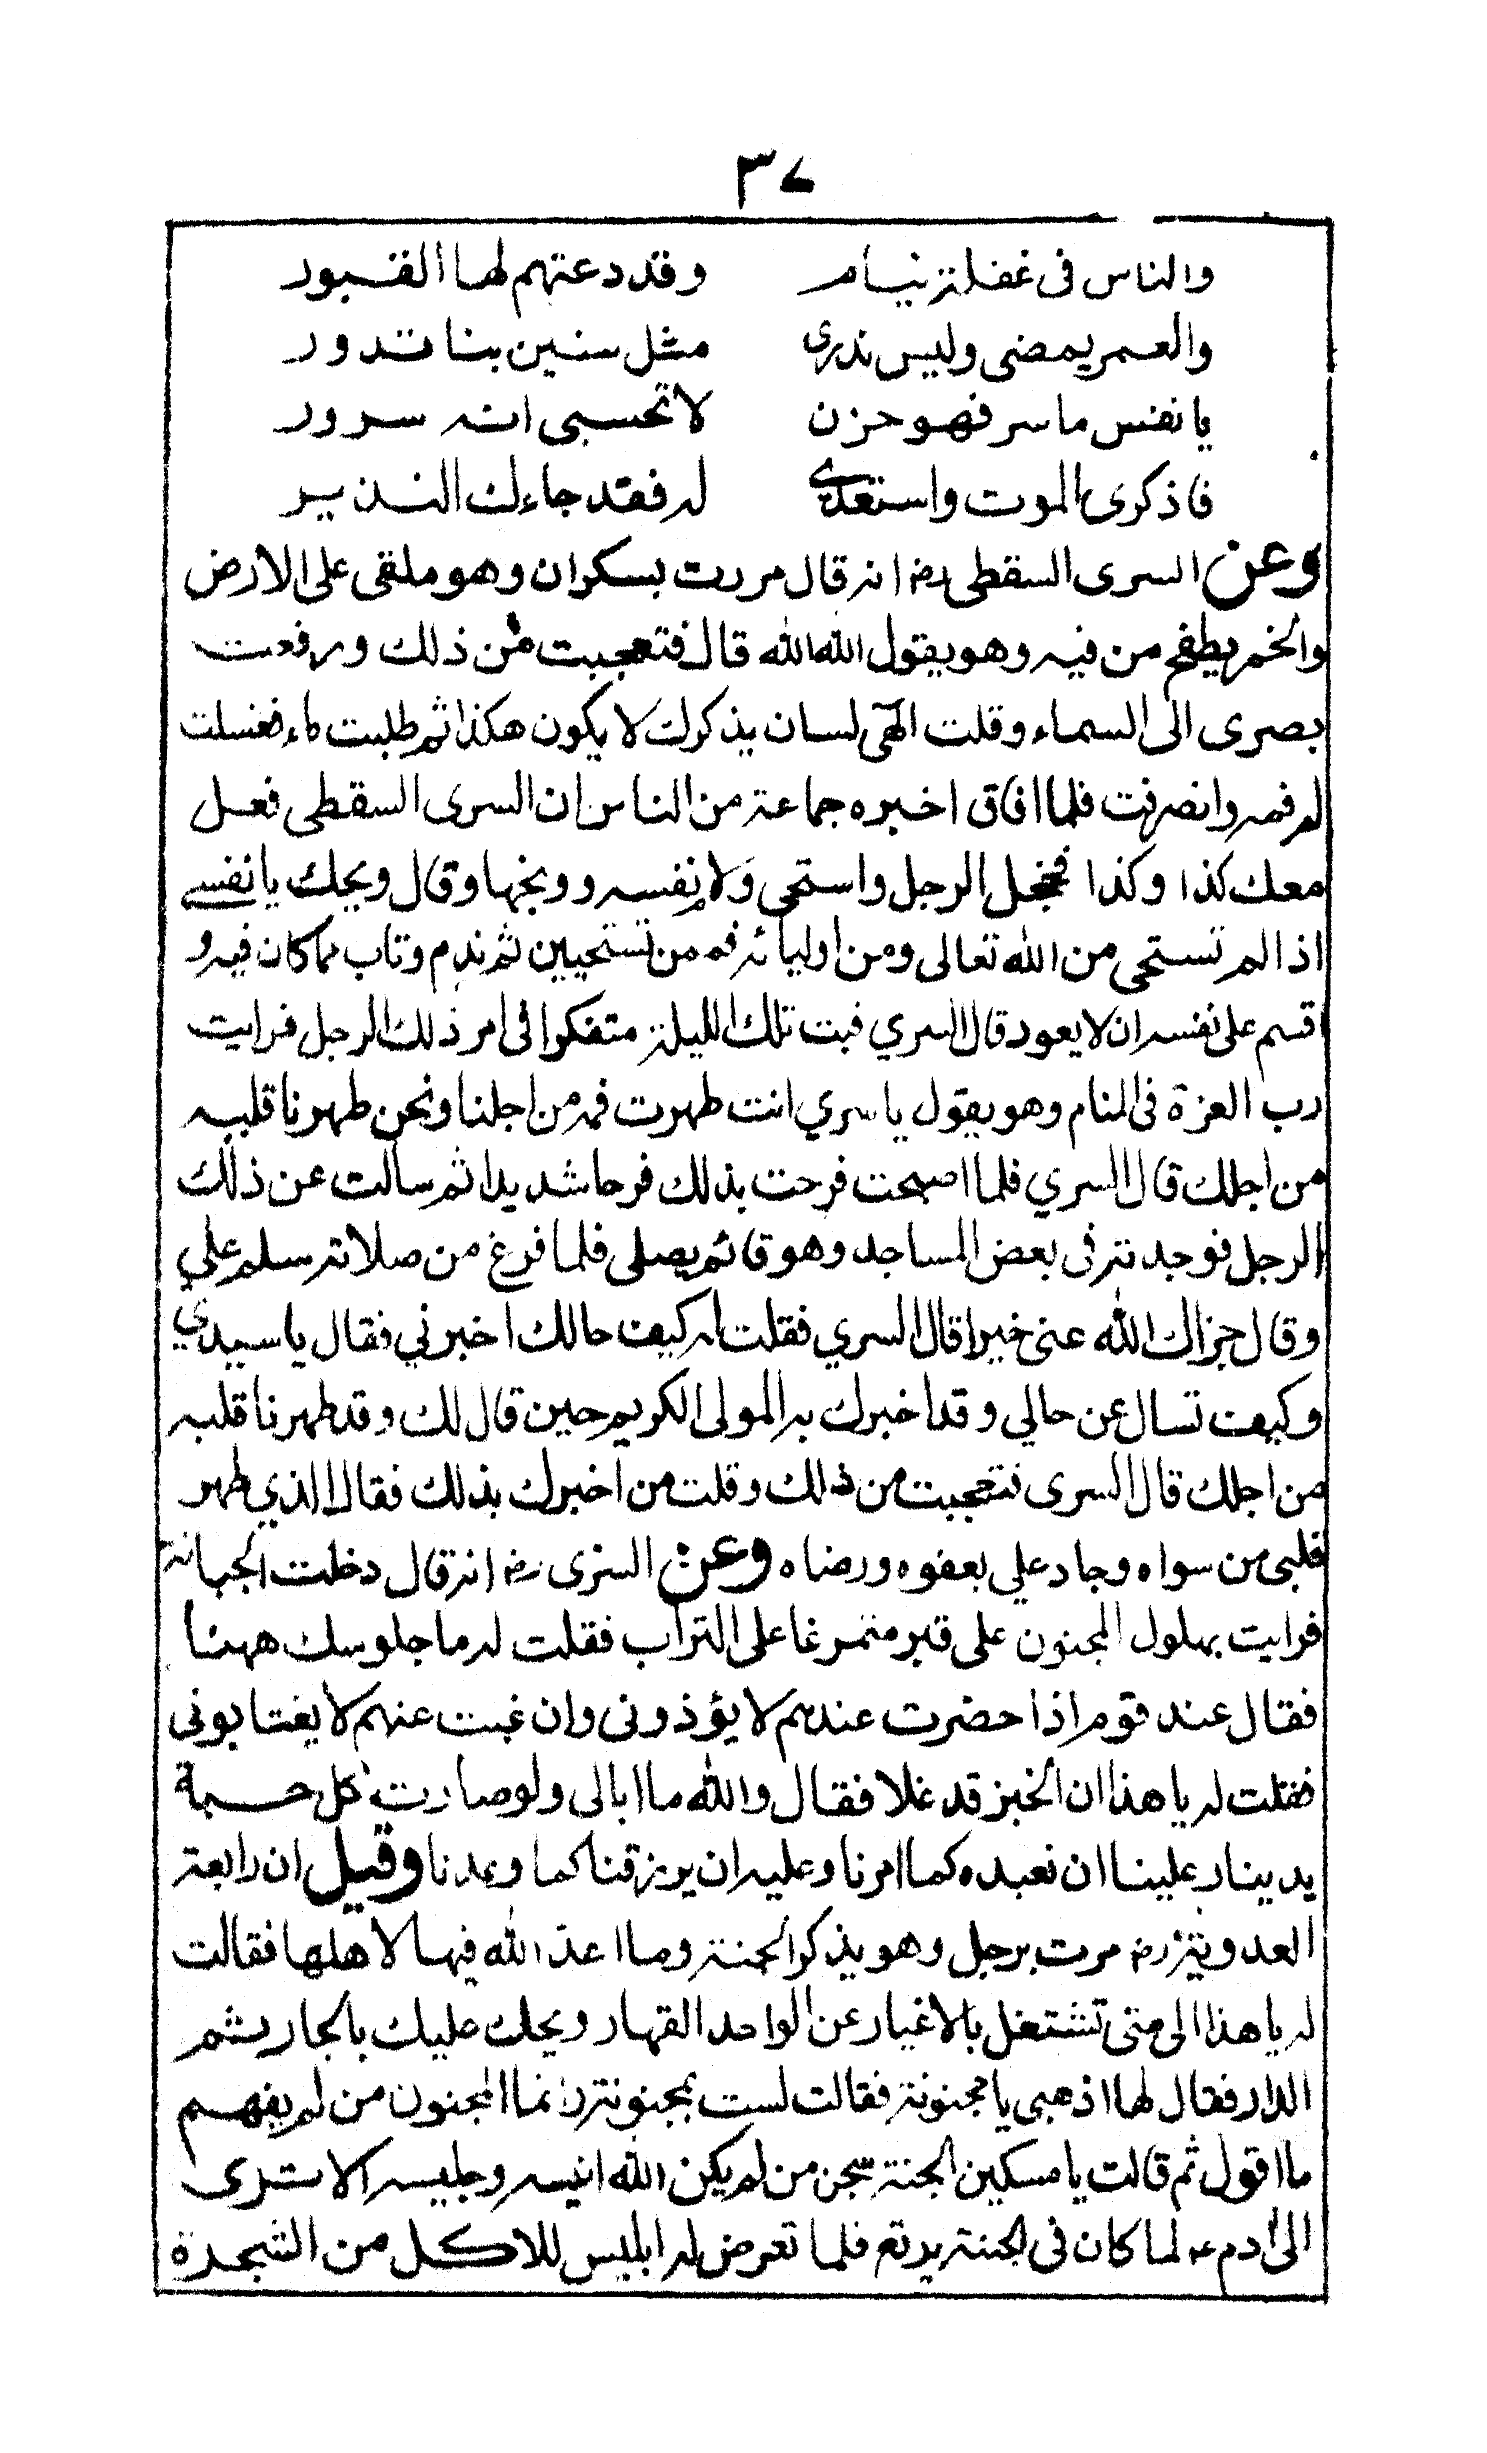 ٣٧
والناس فى غفلة نيام وقد دعتهم لها القبور
والعمر يمضى وليس ندرى مثل سنين بنا تدور
يا نفس ما سر فهو حزن لا تحسبى انه سرور
فاذكرى الموت واستعدى له فقد جاءك النذير
وعن السرى السقطى رضه انه قال مررت بسكران وهو ملقى على الارض
والخمر يطفح من فيه وهو يقول الله الله قال فتعجبت من ذلك ورفعت
بصرى الى السماء وقلت الهى لسان يذكرك لا يكون هكذا ثم طلبت ماء فغسلت
له فمه وانصرفت فلما افاق اخبره جماعة من الناس ان السرى السقطى فعل
معك كذا وكذا فخجل الرجل واستحى ولام نفسه ووبخها وقال ويحك يا نفسى
اذا لم تستحى من الله تعالى ومن اوليائه فمن تستحيين ثم ندم وتاب مما كان فيه و
اقسم على نفسه ان لا يعود قال السري فبت تلك الليلة متفكرا فى امر ذلك الرجل فرايت
رب العزة فى المنام وهو يقول يا سري انت طهرت فمه من اجلنا ونحن طهرنا قلبه
من اجلك قال السري فلما اصبحت فرحت بذلك فرحا شديدا ثم سالت عن ذلك
الرجل فوجدته فى بعض المساجد وهو قائم يصلى فلما فرغ من صلاته سلم علي
وقال جزاك الله عنى خيرا قال السري فقلت له كيف حالك اخبرني فقال يا سيدي
وكيف تسال عن حالي وقد اخبرك به المولى الكريم حين قال لك وقد طهرنا قلبه
من اجلك قال السرى فتعجبت من ذلك وقلت من اخبرك بذلك فقال الذي طهر
قلبى من سواه وجاد علي بعفوه ورضاه وعن السرى رضه انه قال دخلت الجبانة
فرايت بهلول المجنون على قبر متمرغا على التراب فقلت له ما جلوسك ههنا
فقال عند قوم اذا حضرت عندهم لا يؤذونى وان غبت عنهم لا يغتابونى
فقلت له يا هذا ان الخبز قد غلا فقال والله ما ابالى ولو صارت كل حبة
بدينار علينا ان نعبده كما امرنا وعليه ان يرزقنا كما وعدنا وقيل ان رابعة
العدوية رضه مرت برجل وهو يذكر الجنة وما اعد الله فيها لاهلها فقالت
له يا هذا الى متى تشتغل بالاغيار عن الواحد القهار ويحك عليك بالجار ثم
الدار فقال لها اذهبى يا مجنونة فقالت لست بمجنونة وانما المجنون من لم يفهم
ما اقول ثم قالت يا مسكين الجنة سجن من لم يكن الله انيسه وجليسه الا ترى
الى ادم عم لما كان فى الجنة يرتع فلما تعرض له ابليس للاكل من الشجرة